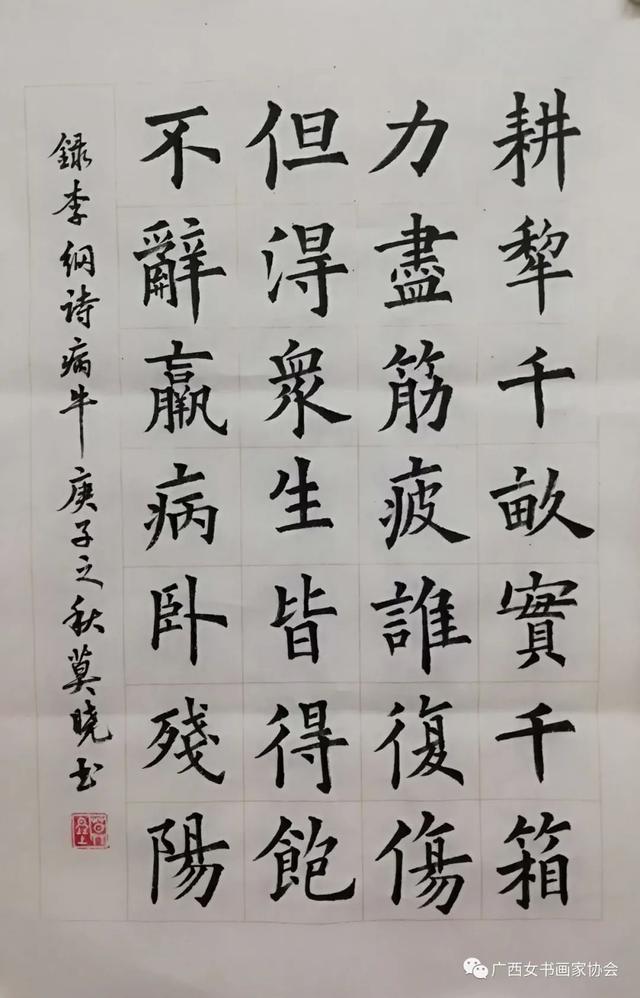 耕犂千畝實千箱
力盡筋疲誰復傷
但淂衆生皆得飽
不辭羸病卧殘陽
録李綱诗病牛庚子之秋莫晓书
广西女书画家协会